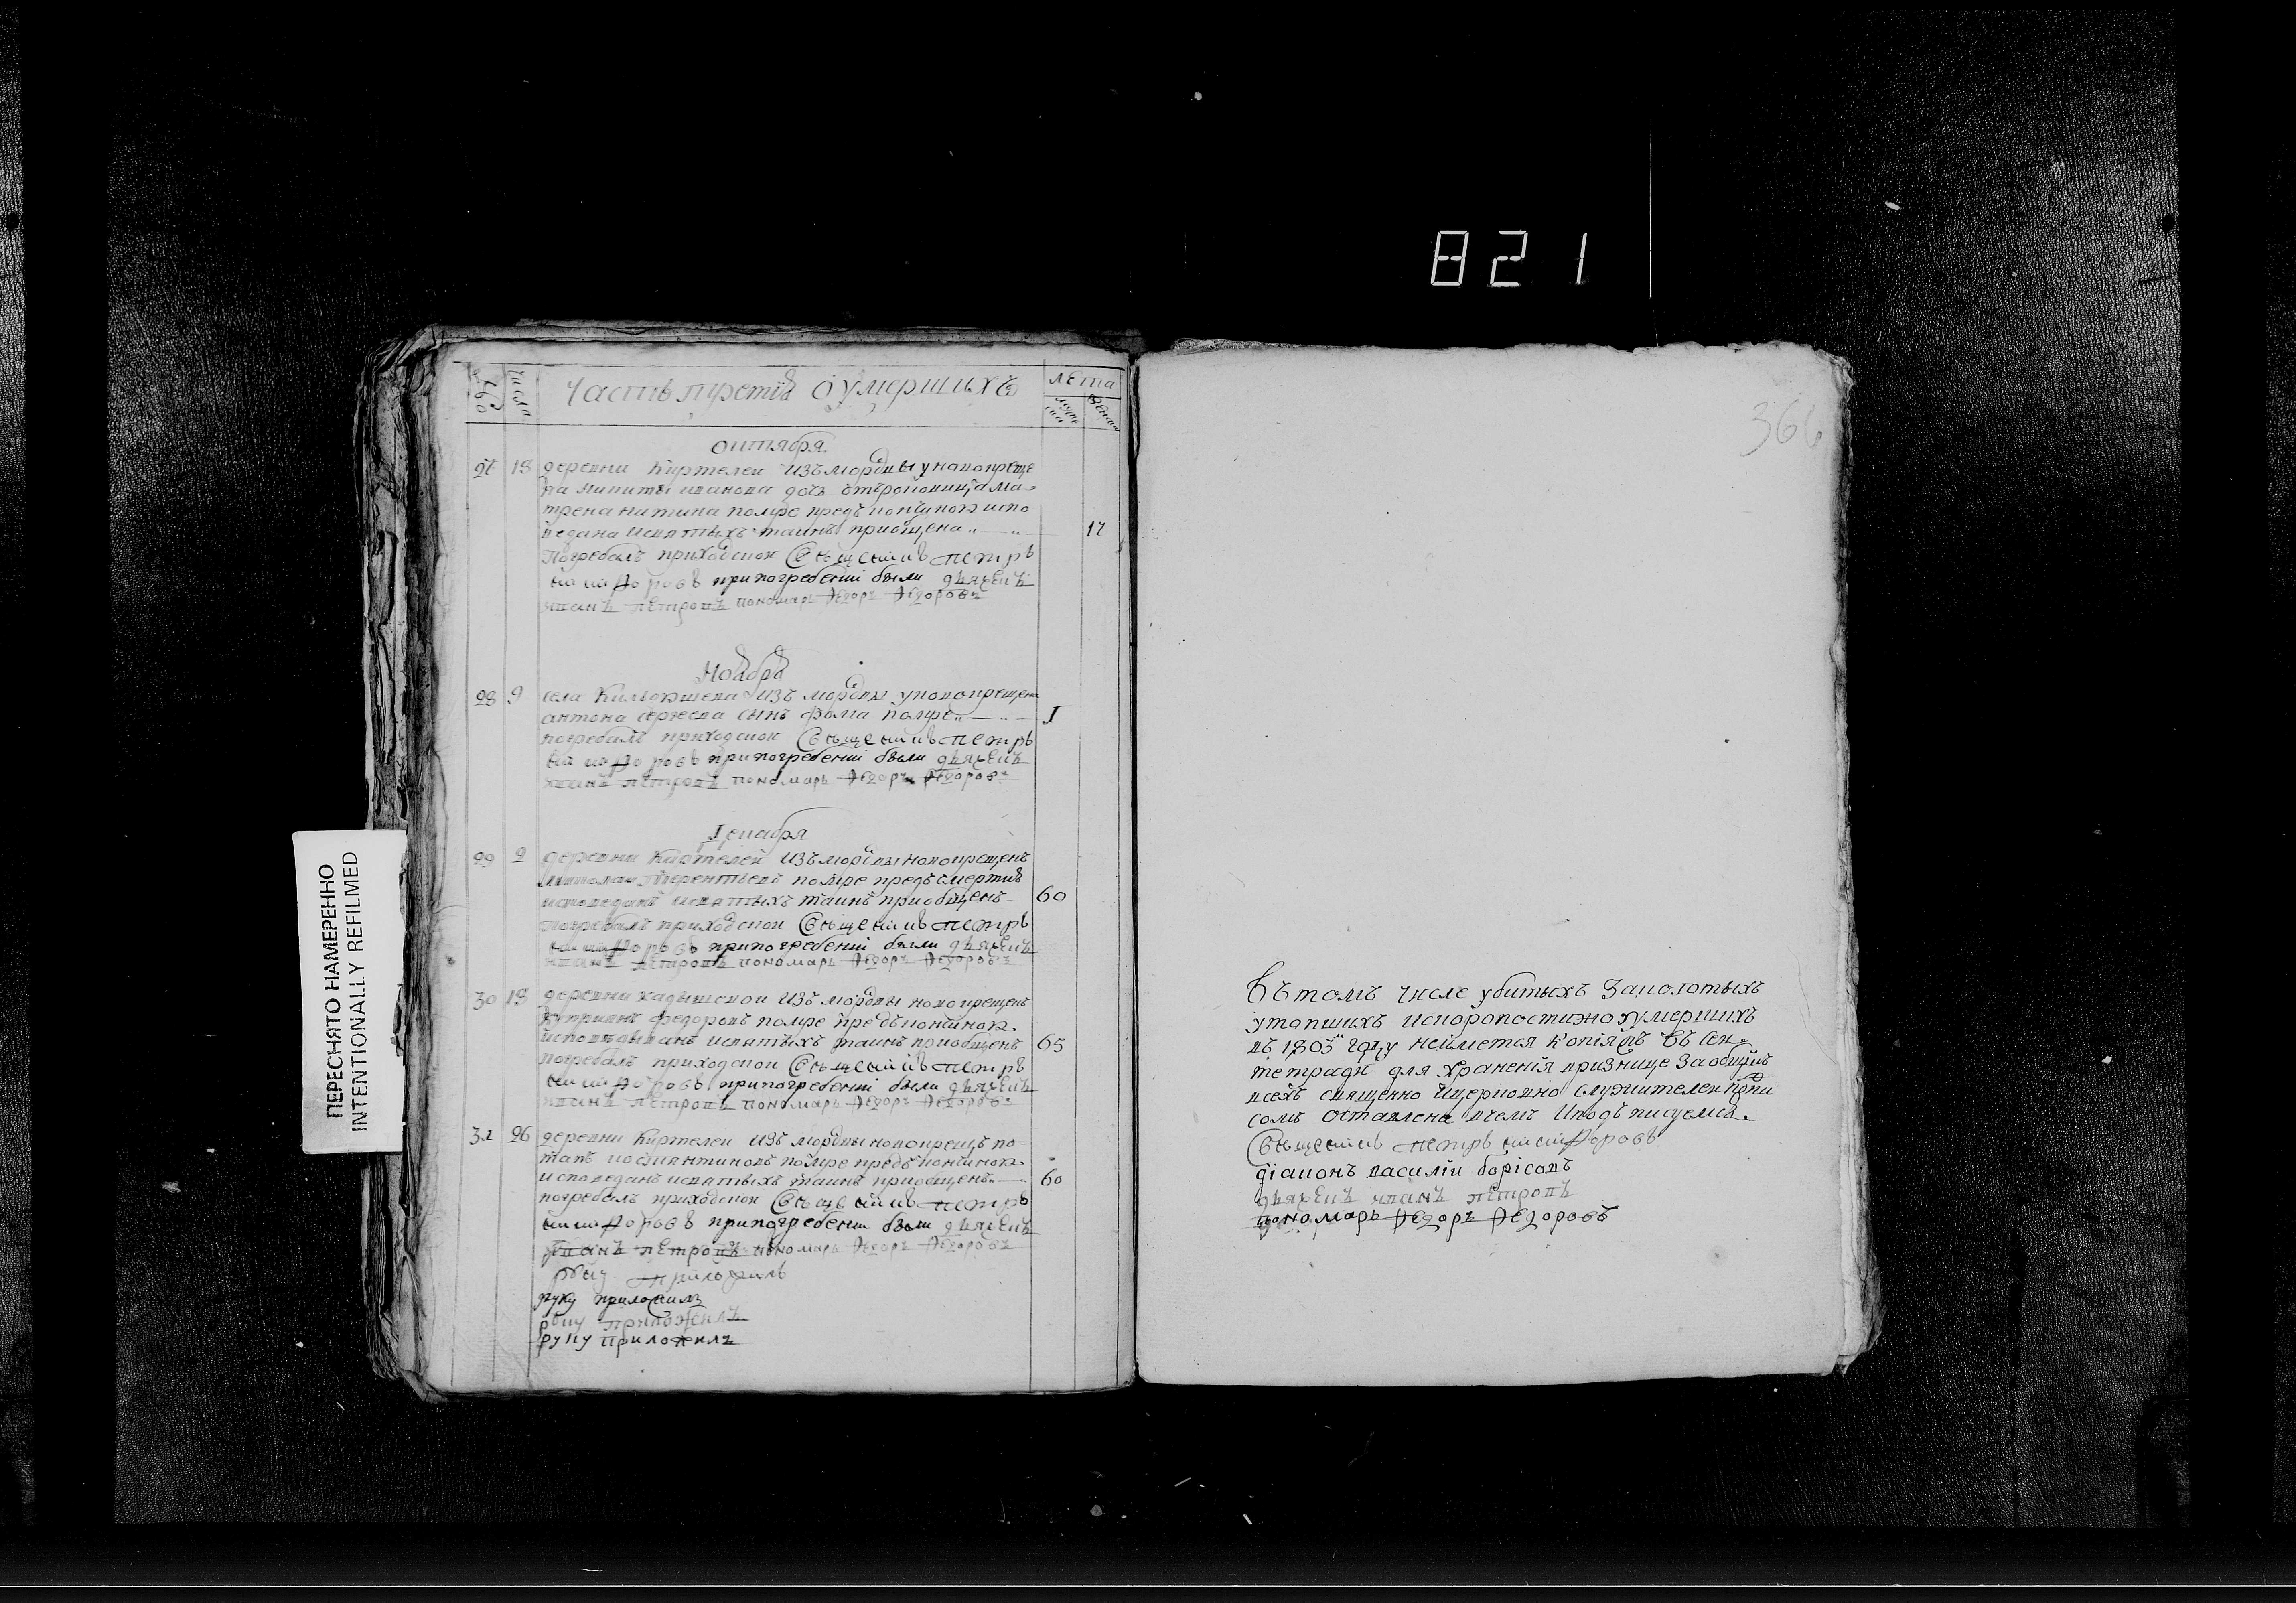 821
366
ПЕРЕСНЯТО НАМЕРЕННО
INTENTIONALLY REFILMED
числа
Часть третия о умершихъ
лета
октября
27 18 деревни Киртелей изъ мордвы у новокреще
на Никиты иванова дочь отъроковица ма
трена никитина помре предъ кончиною испо
ведана исвятыхъ таинъ приобщена 17
погребалъ приходской Священникъ петръ
никифоровъ припогребении были дьячекъ
иванъ петровъ пономарь Федоръ Федоровъ
Ноября
28 9 села изъ мордвы уновокрещена
антона сергеева сынъ фома помре 1
погребалъ приходской Священникъ петръ
никифоровъ припогребении были дьячекъ
иванъ петровъ пономарь Федоръ Федоровъ
Декабря
29 2 деревни Киртелей изъ мордвы новокрещенъ
Николай Терентьевъ помре предъ смертию
исповеданъ исвятыхъ таинъ приобщенъ 60
погребалъ приходской Священникъ петръ
никифоровъ припогребении были дьячекъ
иванъ петровъ пономарь Федоръ Федоровъ
30 18 деревни изъ мордвы новокрещенъ
Куприянъ федоровъ помре предъ кончиною
исповедыванъ исвятыхъ таинъ приобщенъ 65
погребалъ приходской Священникъ петръ
никифоровъ припогребении были дьячекъ
иванъ петровъ пономарь Федоръ Федоровъ
31 26 деревни Киртелей изъ мордвы новокрещенъ по
тапъ костянтиновъ помре предъ кончиною
исповеданъ исвятыхъ таинъ приобщенъ 60
погребалъ приходской Священникъ петръ
никифоровъ припогребении были дьячекъ
иванъ петровъ пономарь Федоръ Федоровъ
руку приложилъ
руку приложилъ
руку приложилъ
руку приложилъ
Въ томъ числе убитыхъ заколотыхъ
утопшихъ искоропостижно умершихъ
въ 1803м году неимеется копия съ сей
тетради для хранения вризнице за общимъ
всехъ священно ицерковно служителей подпи
сомъ оставлена вчемъ иподъписуемся
Священникъ петръ никифоровъ
діаконъ василіи борісовъ
дьячекъ иванъ петровъ
пономарь Федоръ Федоровъ